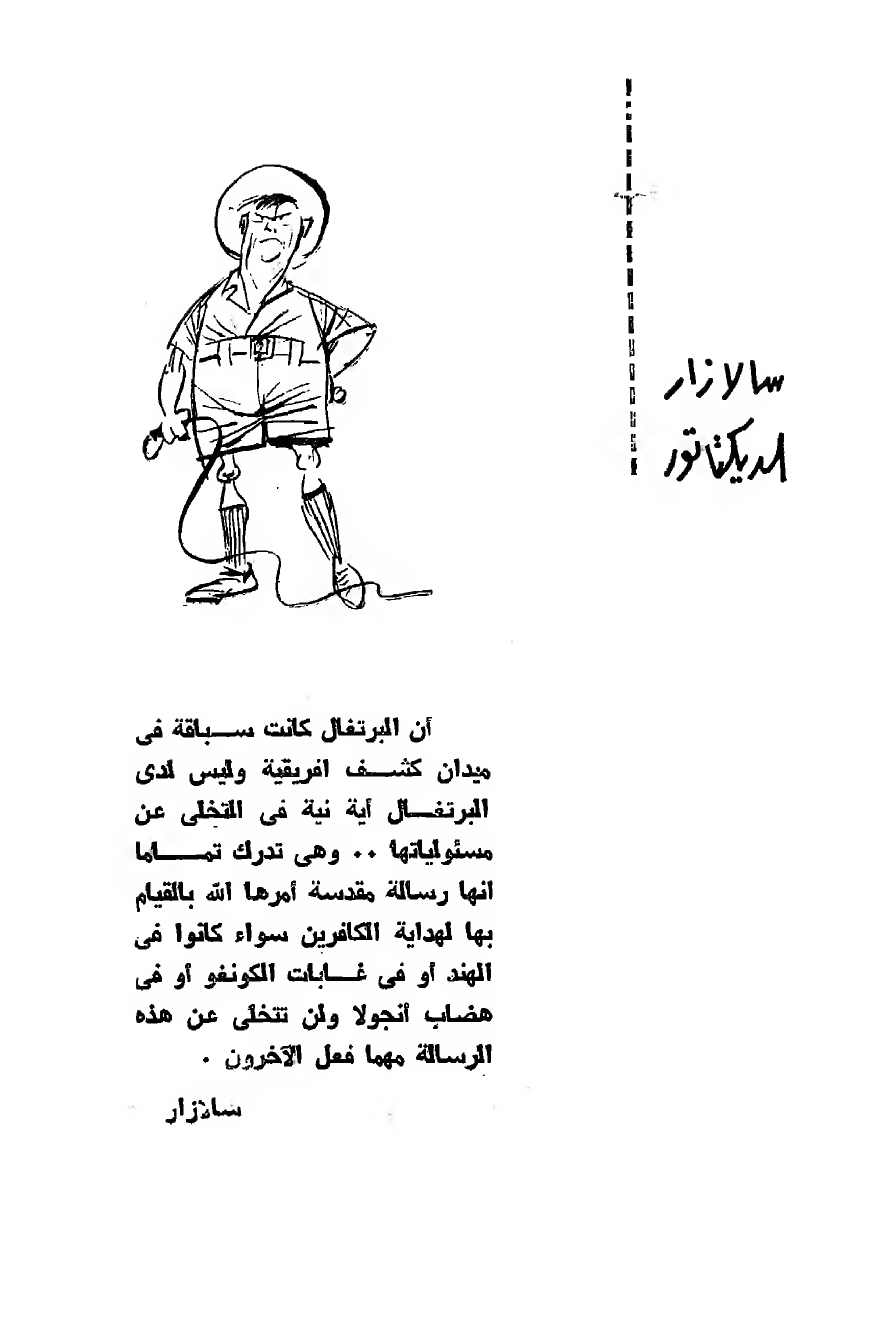 سالازار
الديكتاتور
أن البرتغال كانت سباقة فى
ميدان كشف افريقية وليس لدى
البرتغال أية نية فى التخلى عن
مسئولياتها .. وهى تدرك تماما
انها رسالة مقدسة أمرها الله بالقيام
بها لهداية الكافرين سواء كانوا فى
الهند أو فى غابات الكونغو أو فى
هضاب أنجولا ولن تتخلى عن هذه
الرسالة مهما فعل الآخرون .
سالازار